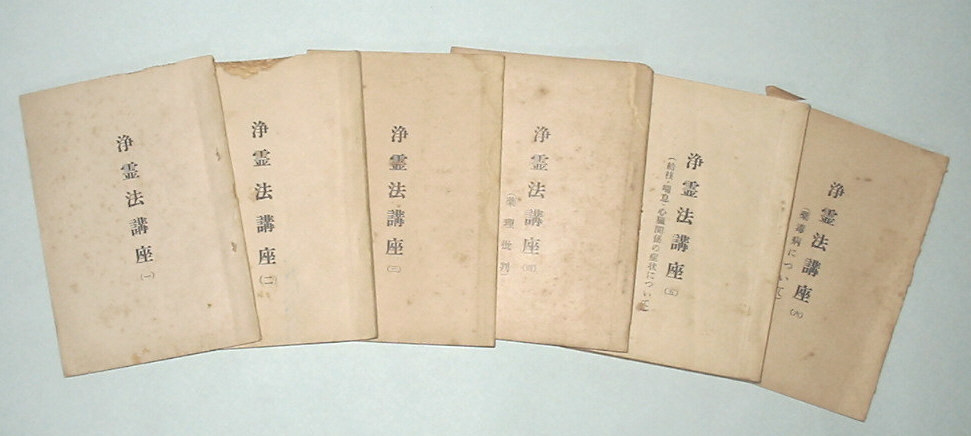 浄霊法講座(一)
浄霊法講座(二)
浄霊法講座(三)
浄霊法講座(四)
(薬理批判)
浄霊法講座(五)
喘息・心臓関係の症状について
浄霊法講座(六)
(薬毒病について)